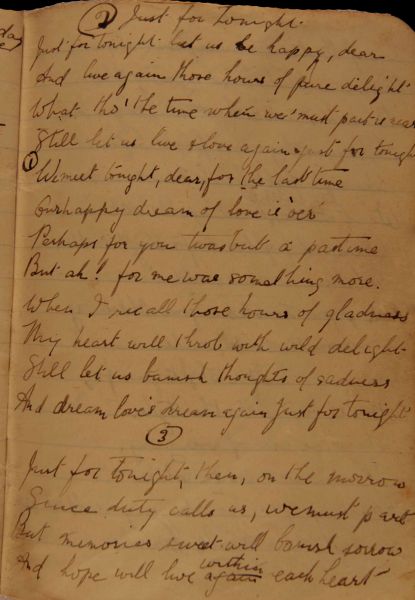 ② Just for Tonight.
Just for tonight let us be happy, dear
And live again those hours of pure delight
What tho' the time when we must part is near
Still let us live & love again just for tonight
① We meet tonight, dear, for the last time
Our happy dream of love is o'er
Perhaps for you twas but a pastime
But ah! for me was something more.
When I recall those hours of gladness
My heart will throb with wild delight
Still let us banish thoughts of sadness
And dream love's dream again Just for tonight
③
Just for tonight, then, on the morrow
Since duty calls us, we must part
But memories sweet will banish sorrow
within
And hope will live again each heart